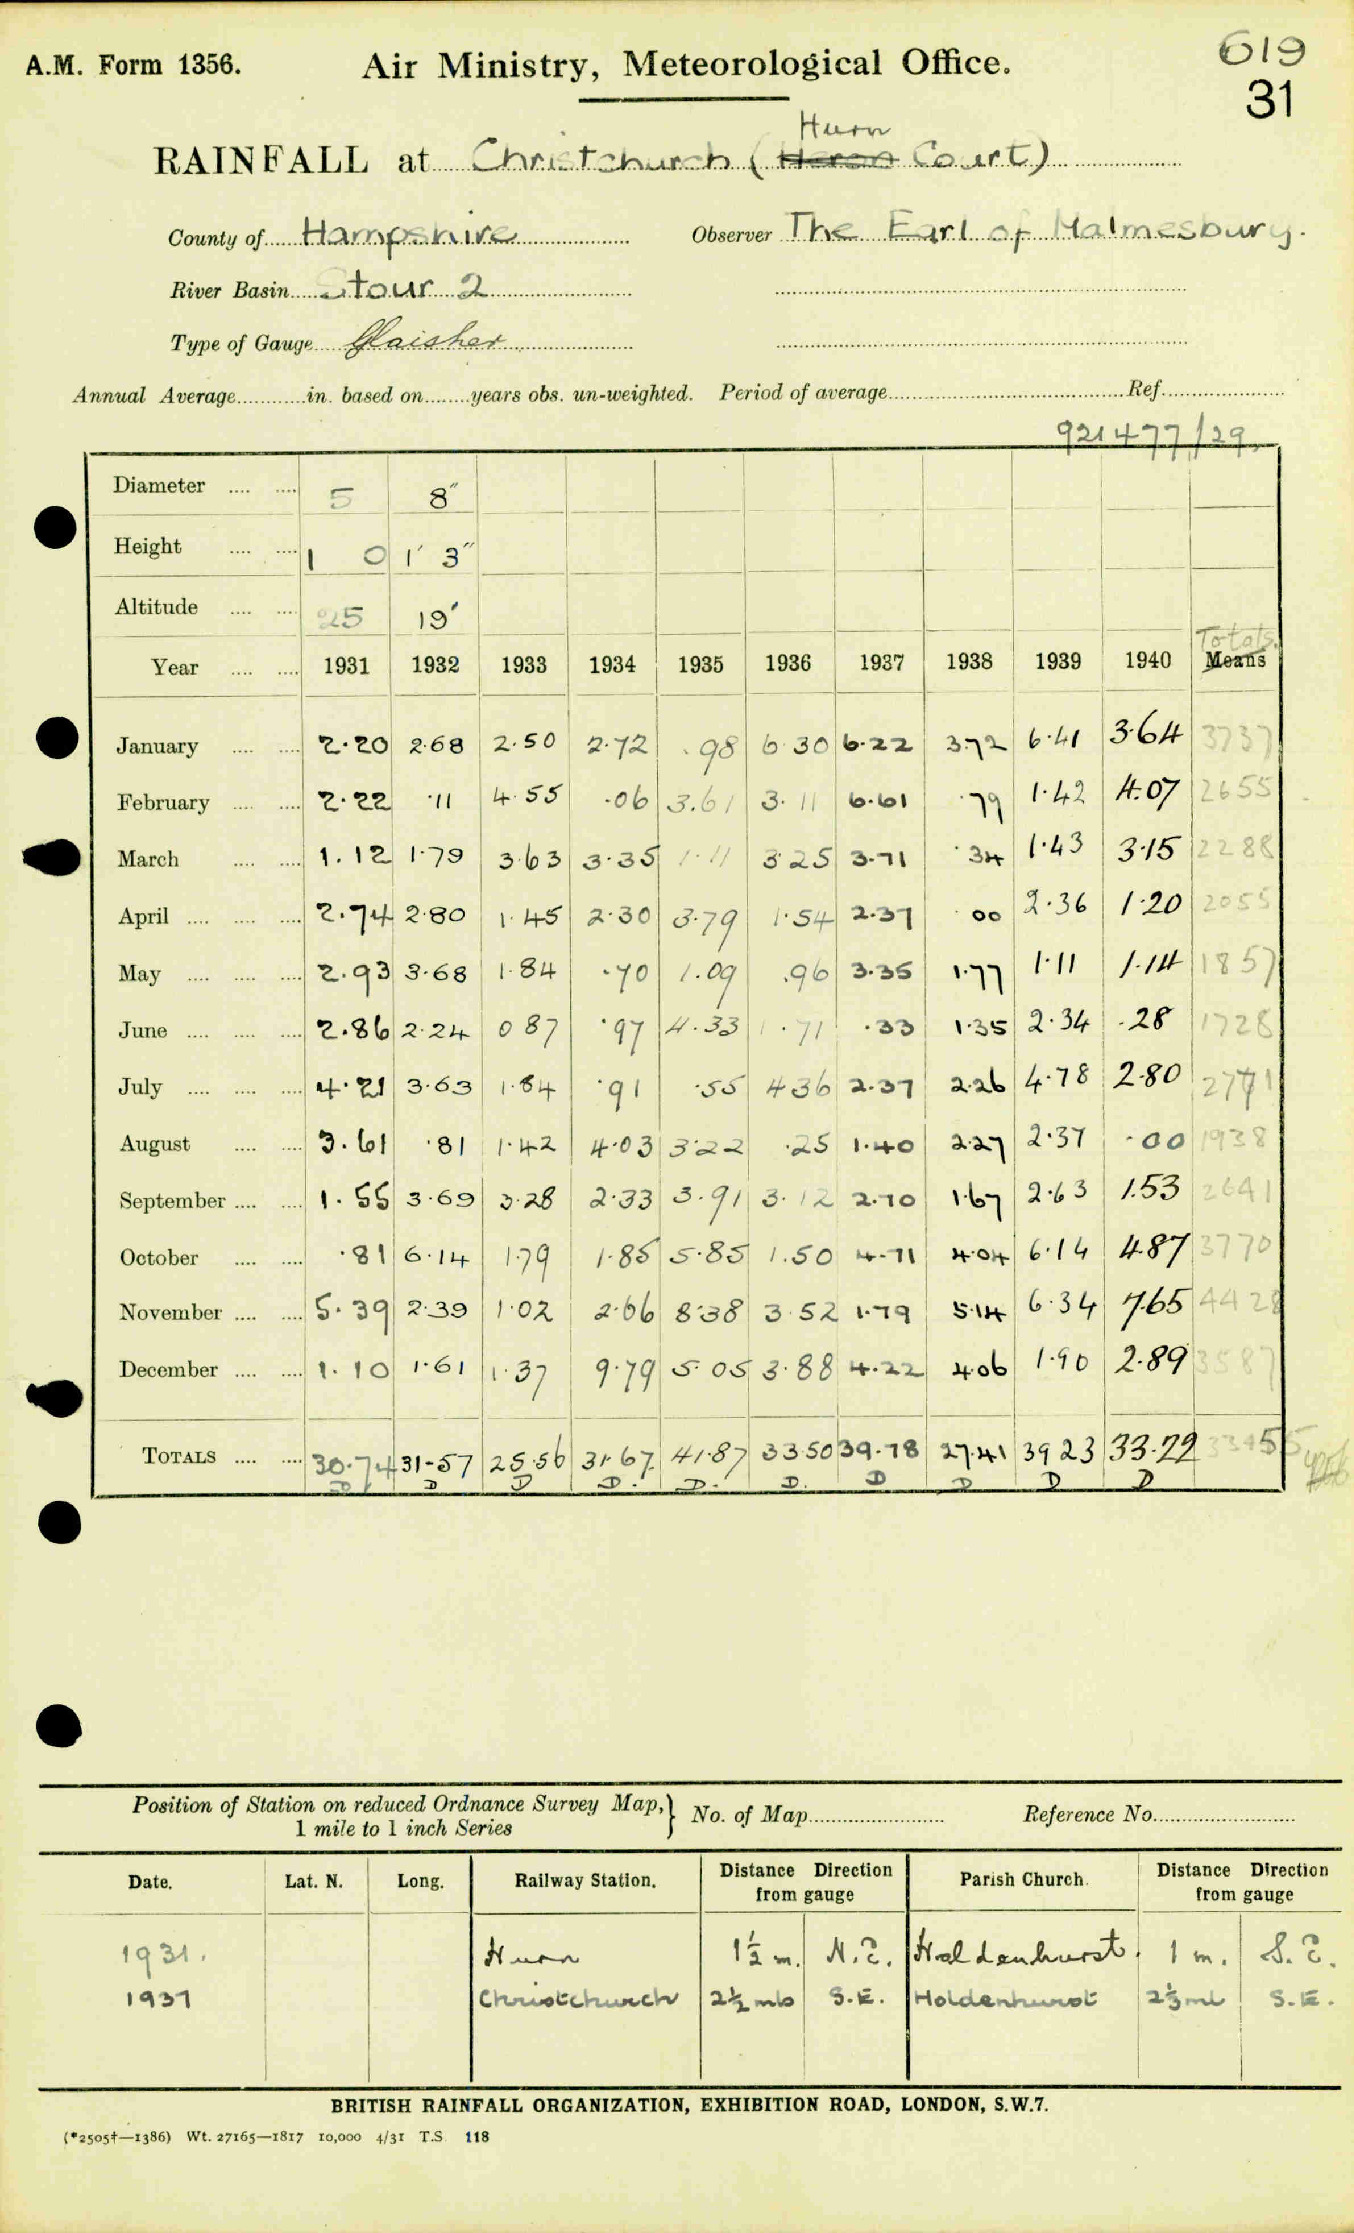 A.M. Form 1356. Air Ministry, Meteorological Office. 619
31
Hurn
RAINFALL at Christchurch (Heron Court)
County of Hampshire Observer The Earl of Malmesbury.
River Basin Stour 2
Type of Gauge Glaisher
Annual Average in. based on years obs. un-weighted. Period of average Ref.
921477/29.
Diameter 5 8"
Height 1 0 1' 3"
Altitude 25 19'
Totals.
Year 1931 1932 1933 1934 1935 1936 1937 1938 1939 1940 Means
January 2.20 2.68 2.50 2.72 .98 6.30 6.22 3.72 6.41 3.64 3737
February 2.22 .11 4.55 .06 3.61 3.11 6.61 .79 1.42 4.07 2655
March 1.12 1.79 3.63 3.35 1.11 3.25 3.71 .34 1.43 3.15 2288
April 2.74 2.80 1.45 2.30 3.79 1.54 2.37 .00 2.36 1.20 2055
May 2.93 3.68 1.84 .70 1.09 .96 3.35 1.77 1.11 1.14 1857
June 2.86 2.24 0.87 .97 4.33 1.71 .33 1.35 2.34 .28 1728
July 4.21 3.63 1.84 .91 .55 4.36 2.37 2.26 4.78 2.80 2771
August 3.61 .81 1.42 4.03 3.22 .25 1.40 2.27 2.37 .00 1938
September 1.55 3.69 3.28 2.33 3.91 3.12 2.70 1.67 2.63 1.53 2641
October .81 6.14 1.79 1.85 5.85 1.50 4.71 4.04 6.14 4.87 3770
November 5.39 2.39 1.02 2.66 8.38 3.52 1.79 5.14 6.34 7.65 4428
December 1.10 1.61 1.37 9.79 5.05 3.88 4.22 4.06 1.90 2.89 3587
TOTALS 30.74 31.57 25.56 31.67 41.87 33.50 39.78 27.41 39.23 33.22 33455
D D D D. D. D. D D D D
Position of Station on reduced Ordnance Survey Map, 1 mile to 1 inch Series } No. of Map Reference No.
Date. Lat. N. Long. Railway Station. Distance Direction from gauge Parish Church. Distance Direction from gauge
1931. Hurn 1½ m. N.E. Holdenhurst. 1 m. S.E.
1937 Christchurch 2½ mls S.E. Holdenhurst 2⅓ ml S.E.
BRITISH RAINFALL ORGANIZATION, EXHIBITION ROAD, LONDON, S.W.7.
(*2505†—1386) Wt. 27165—1817 10,000 4/31 T.S. 118